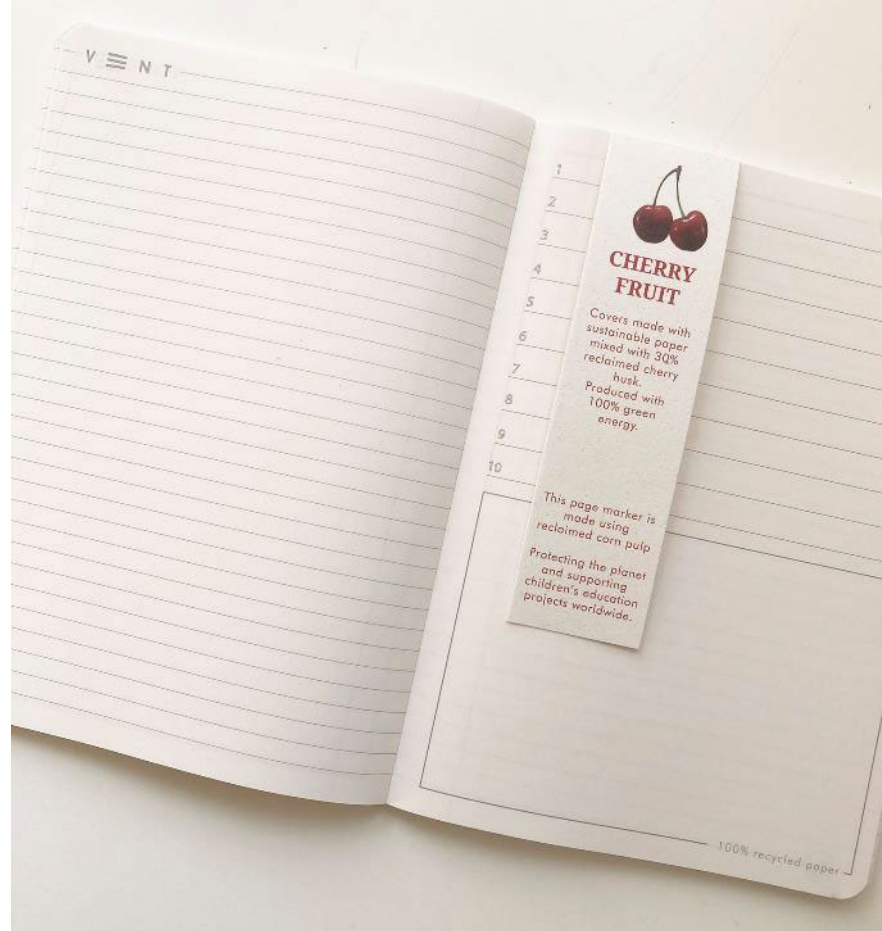 V ☰ N T
1
2
3
4
5
6
7
8
9
10
CHERRY
FRUIT
Covers made with
sustainable paper
mixed with 30%
reclaimed cherry
husk.
Produced with
100% green
energy.
This page marker is
made using
reclaimed corn pulp
Protecting the planet
and supporting
children's education
projects worldwide.
100% recycled paper